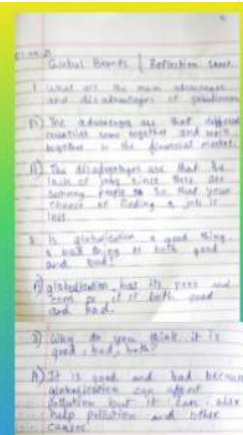 Global Events | Reflection Sheet
1. What are the main advantages
and disadvantages of globalisation
A) The advantages are that different
countries come together and work
together in the financial market.
A) The disadvantages are that the
lack of jobs since there are
people so that your
chance of finding a job is
less.
2. Is globalisation a good thing,
a bad thing or both good
and bad?
A) globalisation has its pros and
cons so it is both good
and bad.
3) Why do you think it is
good, bad, both?
A) It is good and bad because
globalisation can affect
pollution but it can also
help pollution and other
causes.